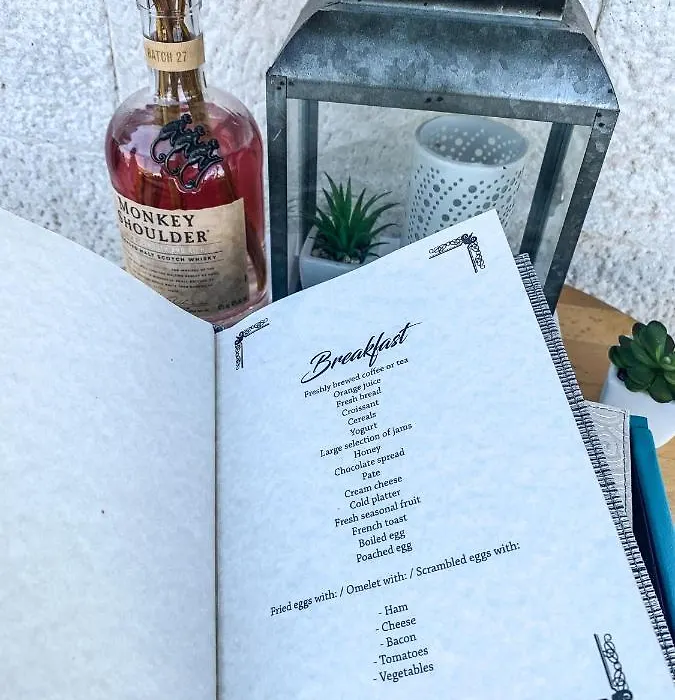 BATCH 27
MONKEY
SHOULDER
MALT SCOTCH WHISKY
Breakfast
Freshly brewed coffee or tea
Orange juice
Fresh bread
Croissant
Cereals
Yogurt
Large selection of jams
Honey
Chocolate spread
Pate
Cream cheese
Cold platter
Fresh seasonal fruit
French toast
Boiled egg
Poached egg
Fried eggs with: / Omelet with: / Scrambled eggs with:
- Ham
- Cheese
- Bacon
- Tomatoes
- Vegetables